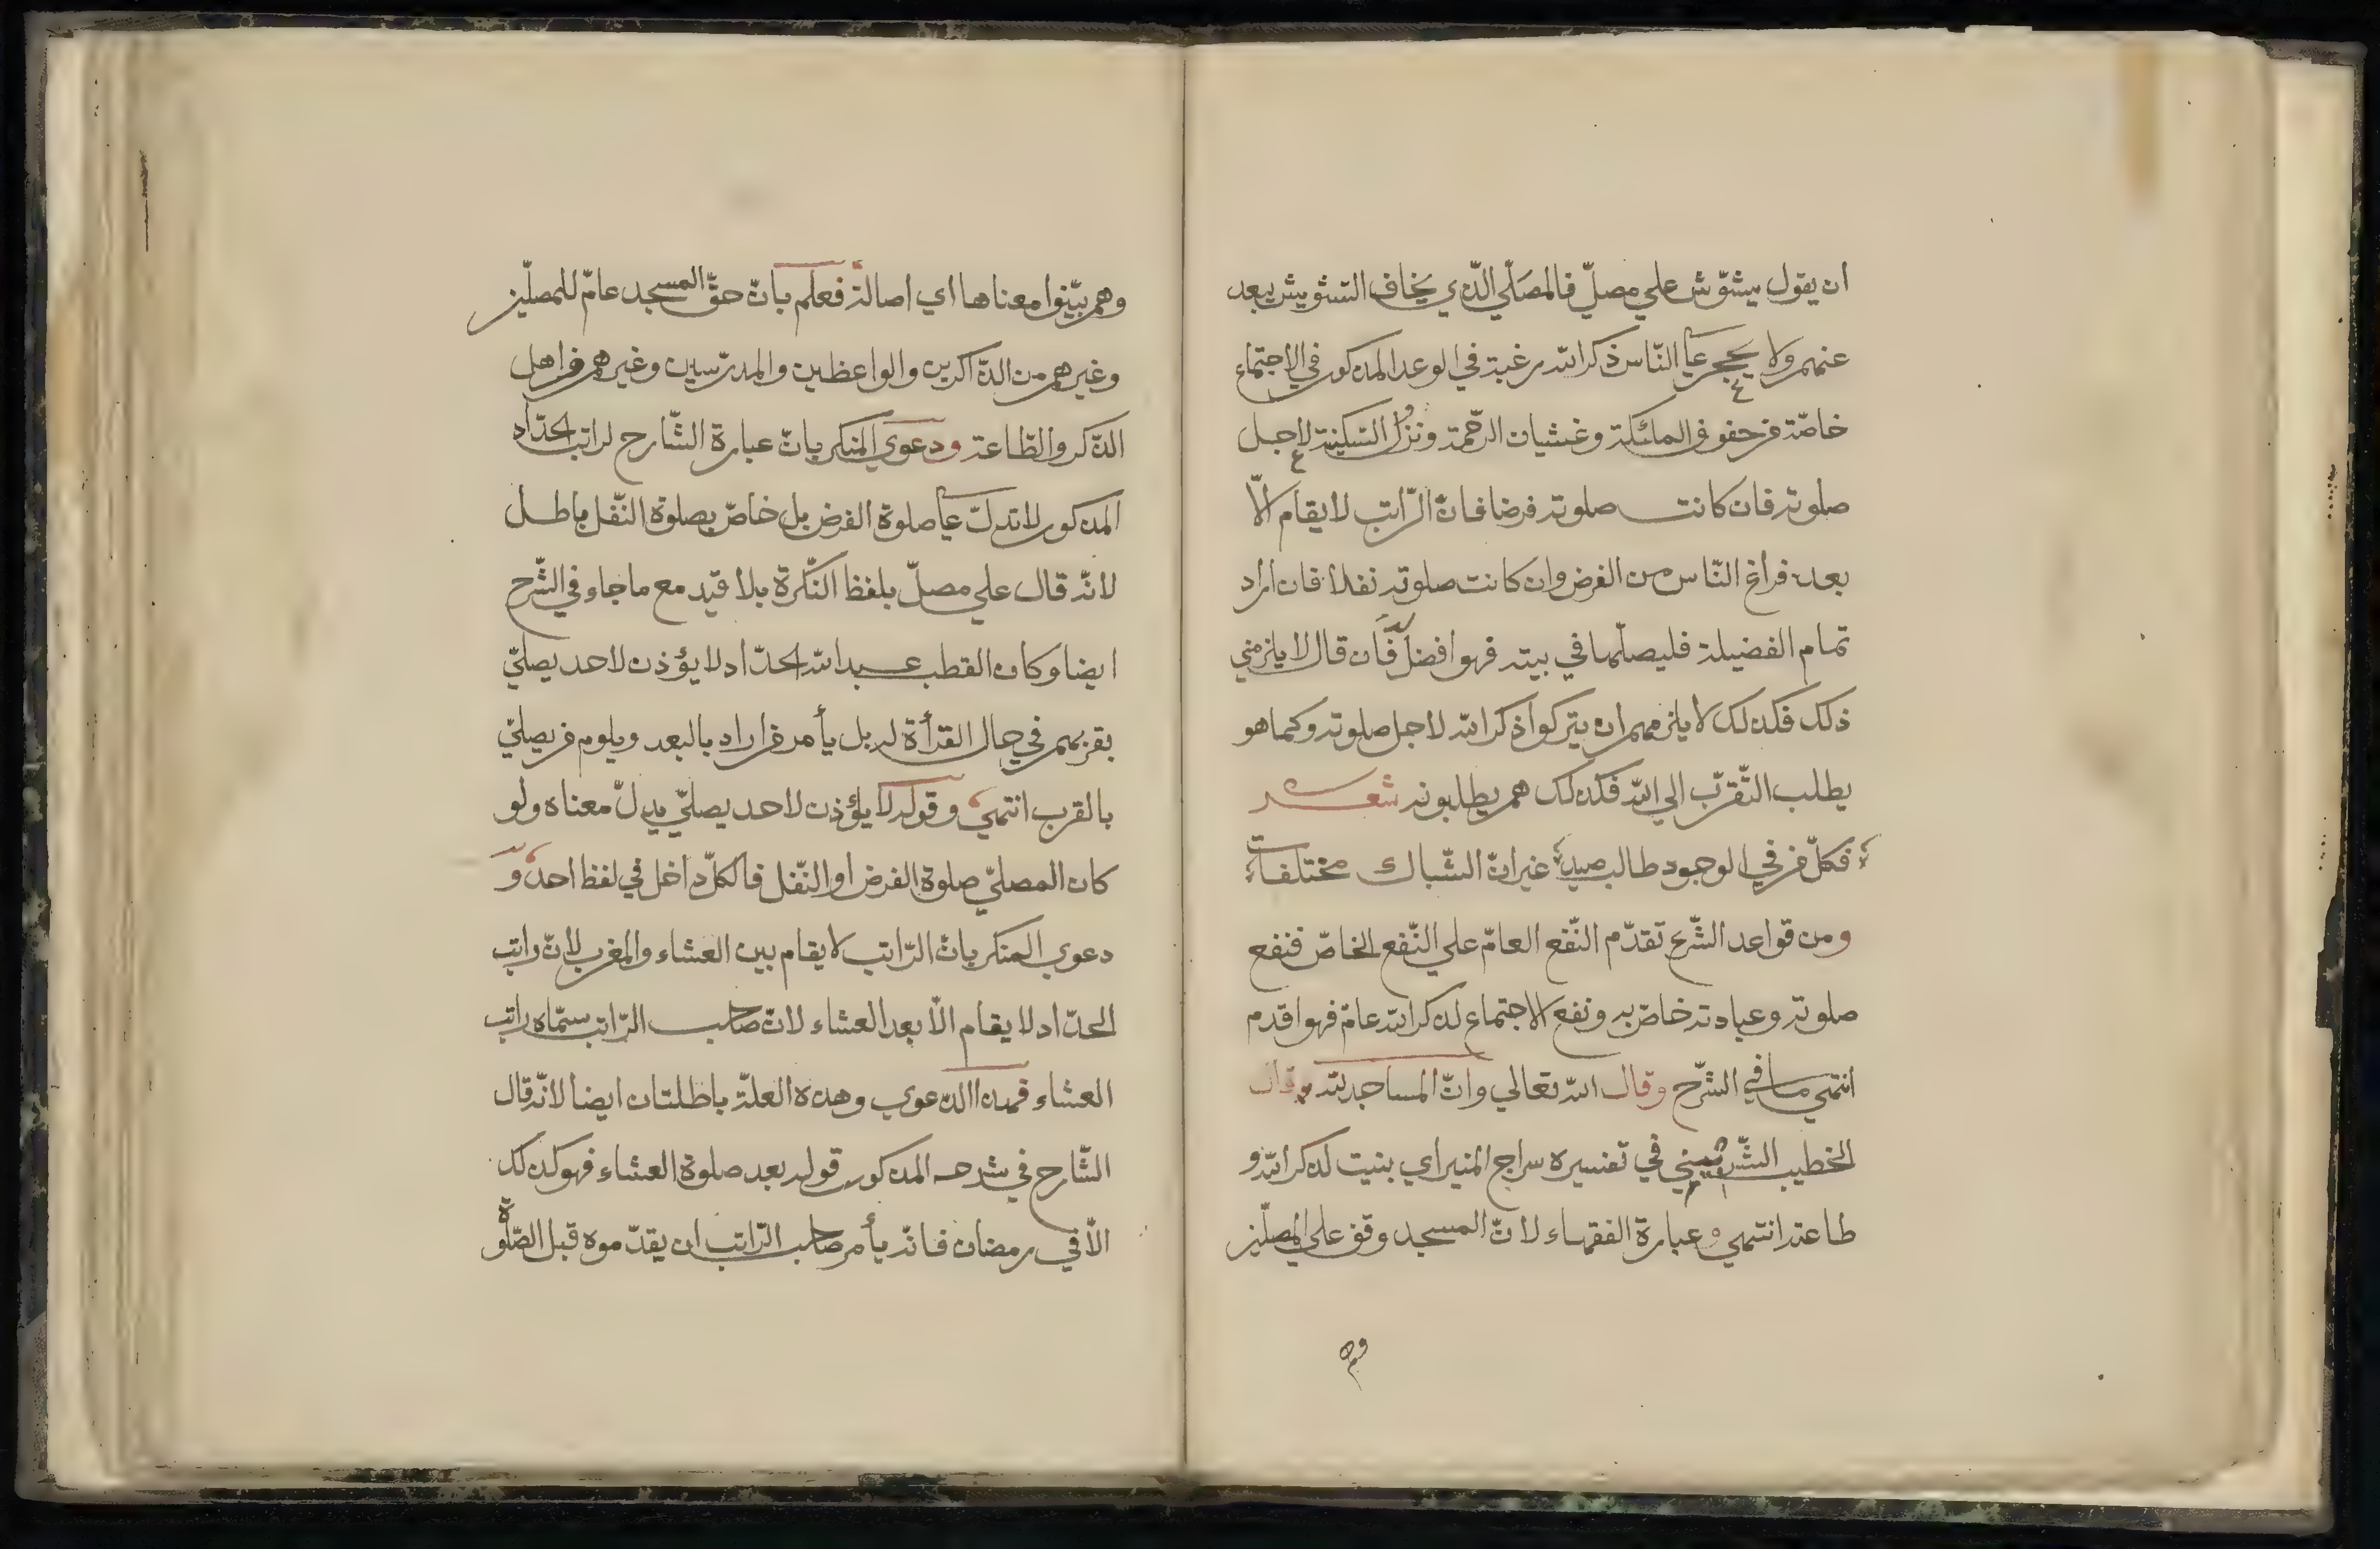 ان يقول يشوّش علي مصلّ فالمصَلّي الّذي يخاف التشويش يبعد
عنهم ولا يحجر علي النّاس ذكر الله رغبة في الوعد المذكور في الاجتماع
خاصّة من حفوف الملئكة وغشيان الرّحمة ونزُول السّكينة لاجل
صلوته فان كانت صلوته فرضا فانّ الرّاتب لا يقام الّا
بعد فراغ النّاس من الفرض وان كانت صلوته نفلا فان اراد
تمام الفضيلة فليصلّها في بيته فهو افضل فان قال لا يلزمني
ذلك فكذلك لا يلزمهم ان يتركوا ذكر الله لاجل صلوته وكما هو
يطلب التّقرّب الي الله فكذلك هم يطلبونه شعر
فكلّ من في الوجود طالب صيد غير انّ الشّباك مختلفات
ومن قواعد الشّرع تقدّم النّفع العامّ علي النّفع الخاصّ فنفع
صلوته وعبادته خاصّ به ونفع الاجتماع لذكر الله عامّ فهو اقدم
انتهي ما في الشّرح وقال الله تعالي وانّ المساجد لله وقال
الخطيب الشّربيني في تفسيره سراج المنير اي بنيت لذكر الله و
طاعته انتهي وعبارة الفقهاء لانّ المسجد وقف علي المصلّين
وهم
وهم بيّنوا معناها اي اصالة فعلم بانّ حقّ المسجد عامّ للمصلّين
وغيرهم من الذّاكرين والواعظين والمدرّسين وغيرهم من اهل
الذّكر والطّاعة ودعوي المنكر بانّ عبارة الشّارح لراتب الحدّاد
المذكور لا تدلّ علي صلوة الفرض بل خاصّ بصلوة النّفل باطل
لانّه قال علي مصلّ بلفظ النّكرة بلا قيد مع ما جاء في الشّرح
ايضا وكان القطب عبد الله الحدّاد لا يؤذن لاحد يصلّي
بقربهم في حال القرأة له بل يأمر من اراد بالبعد ويلوم من يصلّي
بالقرب انتهي وقوله لا يؤذن لاحد يصلّي يدلّ معناه ولو
كان المصلّي صلوة الفرض او النّفل فالكلّ داخل في لفظ احد و
دعوي المنكر بانّ الرّاتب لا يقام بين العشاء والمغرب لانّ راتب
الحدّاد لا يقام الّا بعد العشاء لانّ صاحب الرّاتب سمّاه راتب
العشاء فهذا الدعوي وهذه العلّة باطلتان ايضا لانّه قال
الشّارح في شرحه المذكور قوله بعد صلوة العشاء فهو كذلك
الّا في رمضان فانّه يأمر صاحب الرّاتب ان يقدّموه قبل الصّلوة